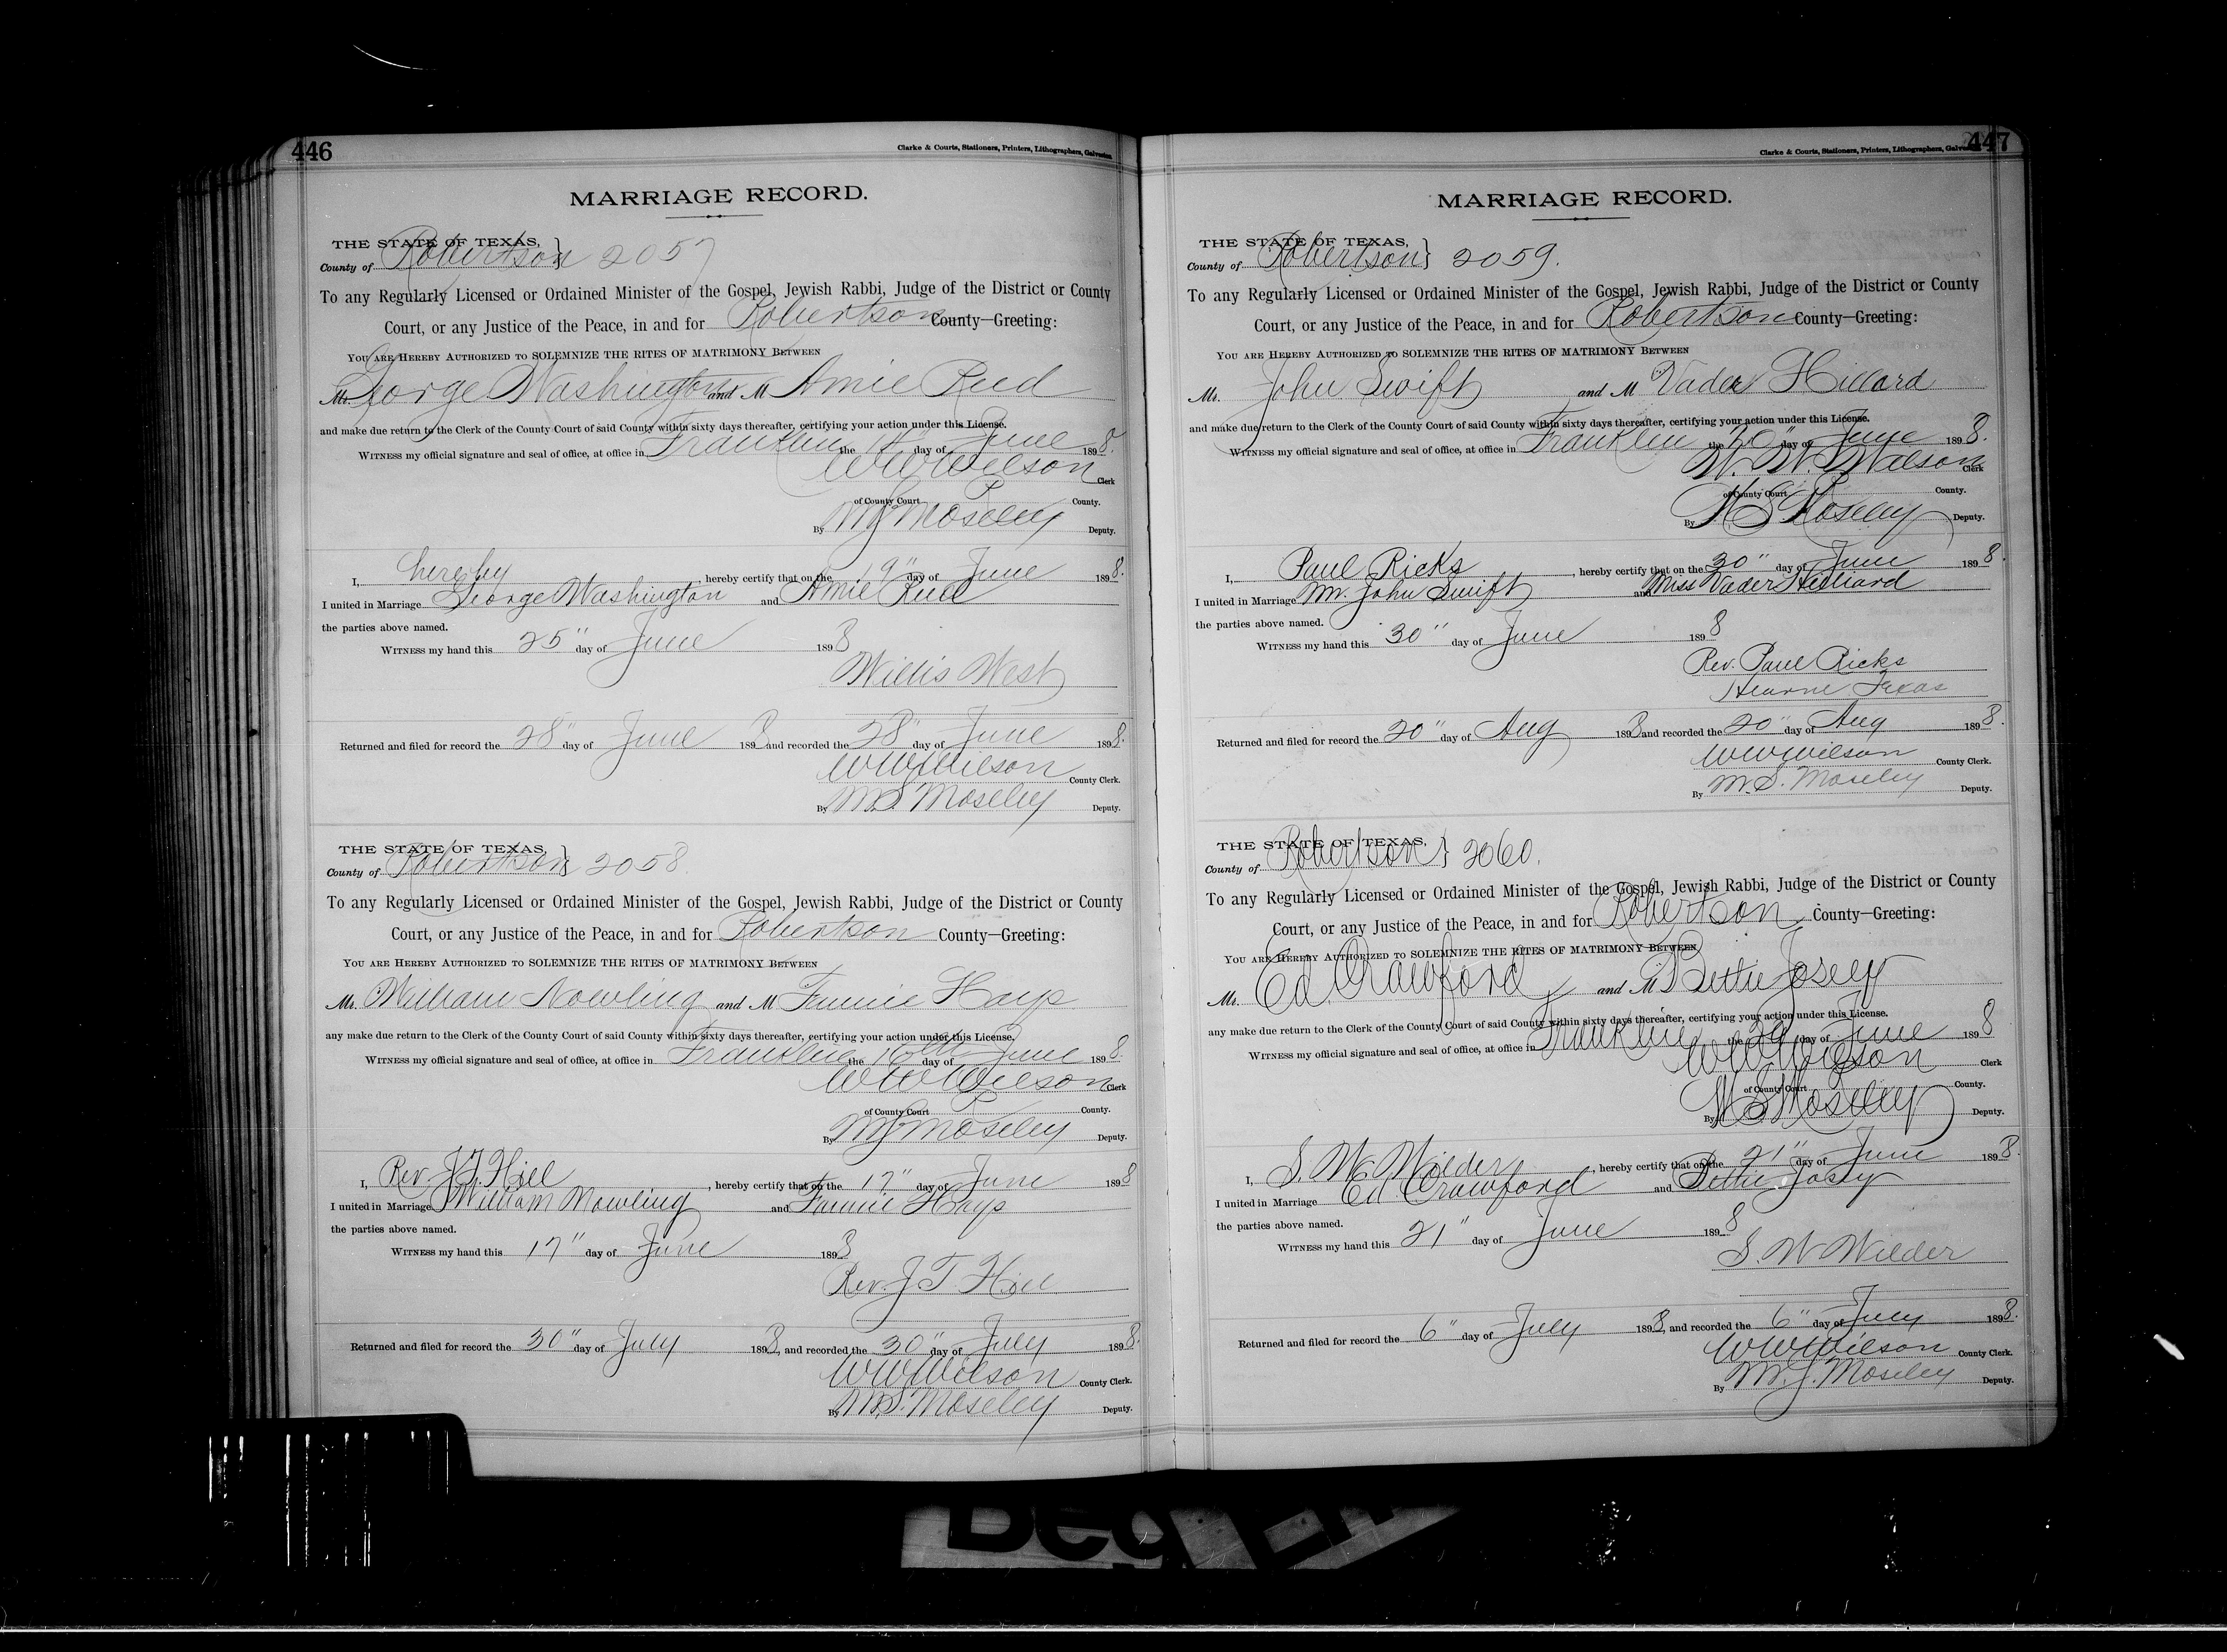 446
Clarke & Courts, Stationers, Printers, Lithographers, Galveston
MARRIAGE RECORD.
THE STATE OF TEXAS,
County of Robertson } 2057
To any Regularly Licensed or Ordained Minister of the Gospel, Jewish Rabbi, Judge of the District or County
Court, or any Justice of the Peace, in and for Robertson County—Greeting:
YOU ARE HEREBY AUTHORIZED TO SOLEMNIZE THE RITES OF MATRIMONY BETWEEN
Mr. George Washington and M Amie Reed
and make due return to the Clerk of the County Court of said County within sixty days thereafter, certifying your action under this License.
WITNESS my official signature and seal of office, at office in Franklin the day of June 1898.
W W Wilson Clerk
of County Court County.
By M S Moseley Deputy.
I, hereby, hereby certify that on the 19" day of June 1898.
I united in Marriage George Washington and Amie Reed
the parties above named.
WITNESS my hand this 25" day of June 1898
Willis West
Returned and filed for record the 28" day of June 1898 and recorded the 28" day of June 1898.
W W Wilson County Clerk.
By M.S. Moseley Deputy.
THE STATE OF TEXAS,
County of Robertson } 2058
To any Regularly Licensed or Ordained Minister of the Gospel, Jewish Rabbi, Judge of the District or County
Court, or any Justice of the Peace, in and for Robertson County—Greeting:
YOU ARE HEREBY AUTHORIZED TO SOLEMNIZE THE RITES OF MATRIMONY BETWEEN
Mr. William Nowling and M Fannie Hays
any make due return to the Clerk of the County Court of said County within sixty days thereafter, certifying your action under this License.
WITNESS my official signature and seal of office, at office in Franklin the 16th day of June 1898.
W W Wilson Clerk
of County Court County.
By M S Moseley Deputy.
I, Rev. J.T. Hill, hereby certify that on the 17" day of June 1898
I united in Marriage William Mowling and Fannie Hays
the parties above named.
WITNESS my hand this 17" day of June 1898
Rev. J T Hill
Returned and filed for record the 30" day of July 1898, and recorded the 30" day of July 1898.
W W Wilson County Clerk.
By M.S. Moseley Deputy.
447
Clarke & Courts, Stationers, Printers, Lithographers,
MARRIAGE RECORD.
THE STATE OF TEXAS,
County of Robertson } 2059.
To any Regularly Licensed or Ordained Minister of the Gospel, Jewish Rabbi, Judge of the District or County
Court, or any Justice of the Peace, in and for Robertson County—Greeting:
YOU ARE HEREBY AUTHORIZED TO SOLEMNIZE THE RITES OF MATRIMONY BETWEEN
Mr. John Swift and M Vader Hillard
and make due return to the Clerk of the County Court of said County within sixty days thereafter, certifying your action under this License.
WITNESS my official signature and seal of office, at office in Franklin the 20" day of June 1898.
W. W. Wilson Clerk
of County Court County.
By M S Moseley Deputy.
I, Paul Ricks, hereby certify that on the 30" day of June 1898.
I united in Marriage Mr. John Swift and Miss Vader Hilliard
the parties above named.
WITNESS my hand this 30" day of June 1898
Rev. Paul Ricks
Hearne Texas
Returned and filed for record the 20" day of Aug 1898 and recorded the 20" day of Aug 1898.
W W Wilson County Clerk.
By M.S. Moseley Deputy.
THE STATE OF TEXAS,
County of Robertson } 2060.
To any Regularly Licensed or Ordained Minister of the Gospel, Jewish Rabbi, Judge of the District or County
Court, or any Justice of the Peace, in and for Robertson County—Greeting:
YOU ARE HEREBY AUTHORIZED TO SOLEMNIZE THE RITES OF MATRIMONY BETWEEN
Mr. Ed. Crawford and M Bettie Josey
any make due return to the Clerk of the County Court of said County within sixty days thereafter, certifying your action under this License.
WITNESS my official signature and seal of office, at office in Franklin the 20 day of June 1898
W W Wilson Clerk
of County Court County.
By M S Moseley Deputy.
I, S. W. Wilder, hereby certify that on the 21" day of June 1898.
I united in Marriage Ed Crawford and Bettie Josey
the parties above named.
WITNESS my hand this 21" day of June 1898
S. W Wilder
Returned and filed for record the 6" day of July 1898, and recorded the 6" day of July 1898.
W W Wilson County Clerk.
By M.S. Moseley Deputy.